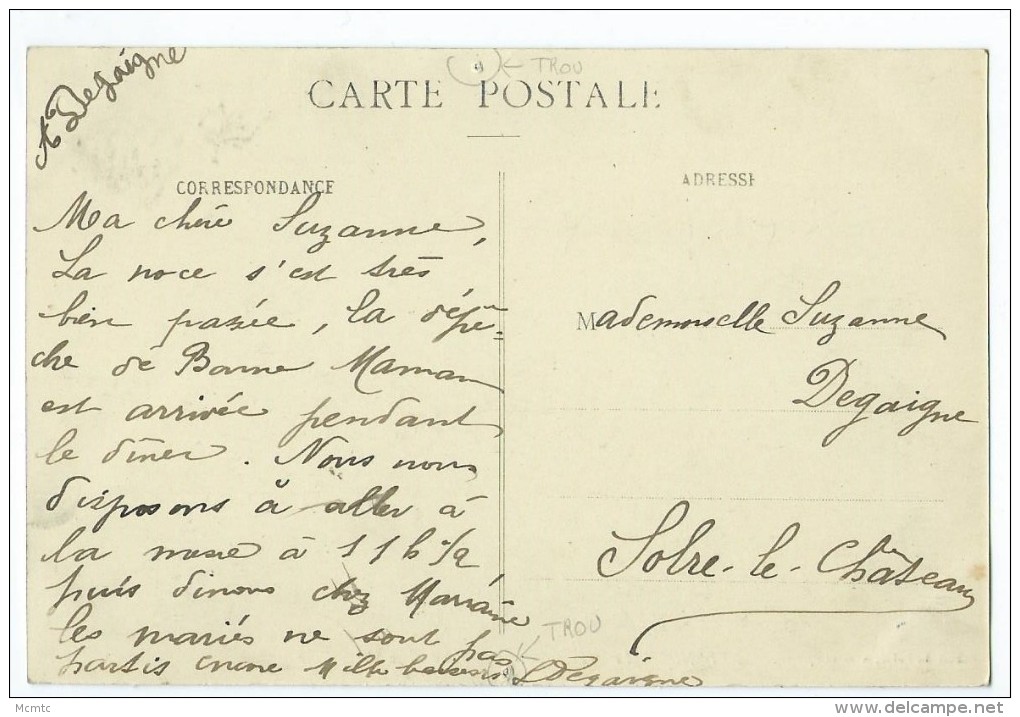 A Degaigne
TROU
CARTE POSTALE
CORRESPONDANCE
ADRESSE
Ma chère Suzanne,
La noce s'est très
bien passée, la dépê-
che de Bonne Maman
est arrivée pendant
le dîner. Nous nous
disposons à aller à
la messe à 11h 1/2
puis dinons chez Marraine
les mariés ne sont pas
partis encore Mille baisers Degaigne
Mademoiselle Suzanne
Degaigne
Solre-le-Château
TROU
Mcmtc
delcampe.net